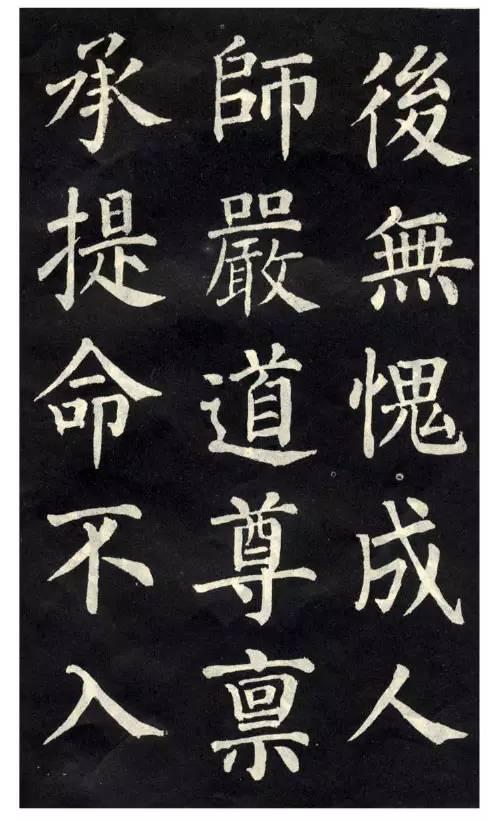 後無愧成人
師嚴道尊稟
承提命不入